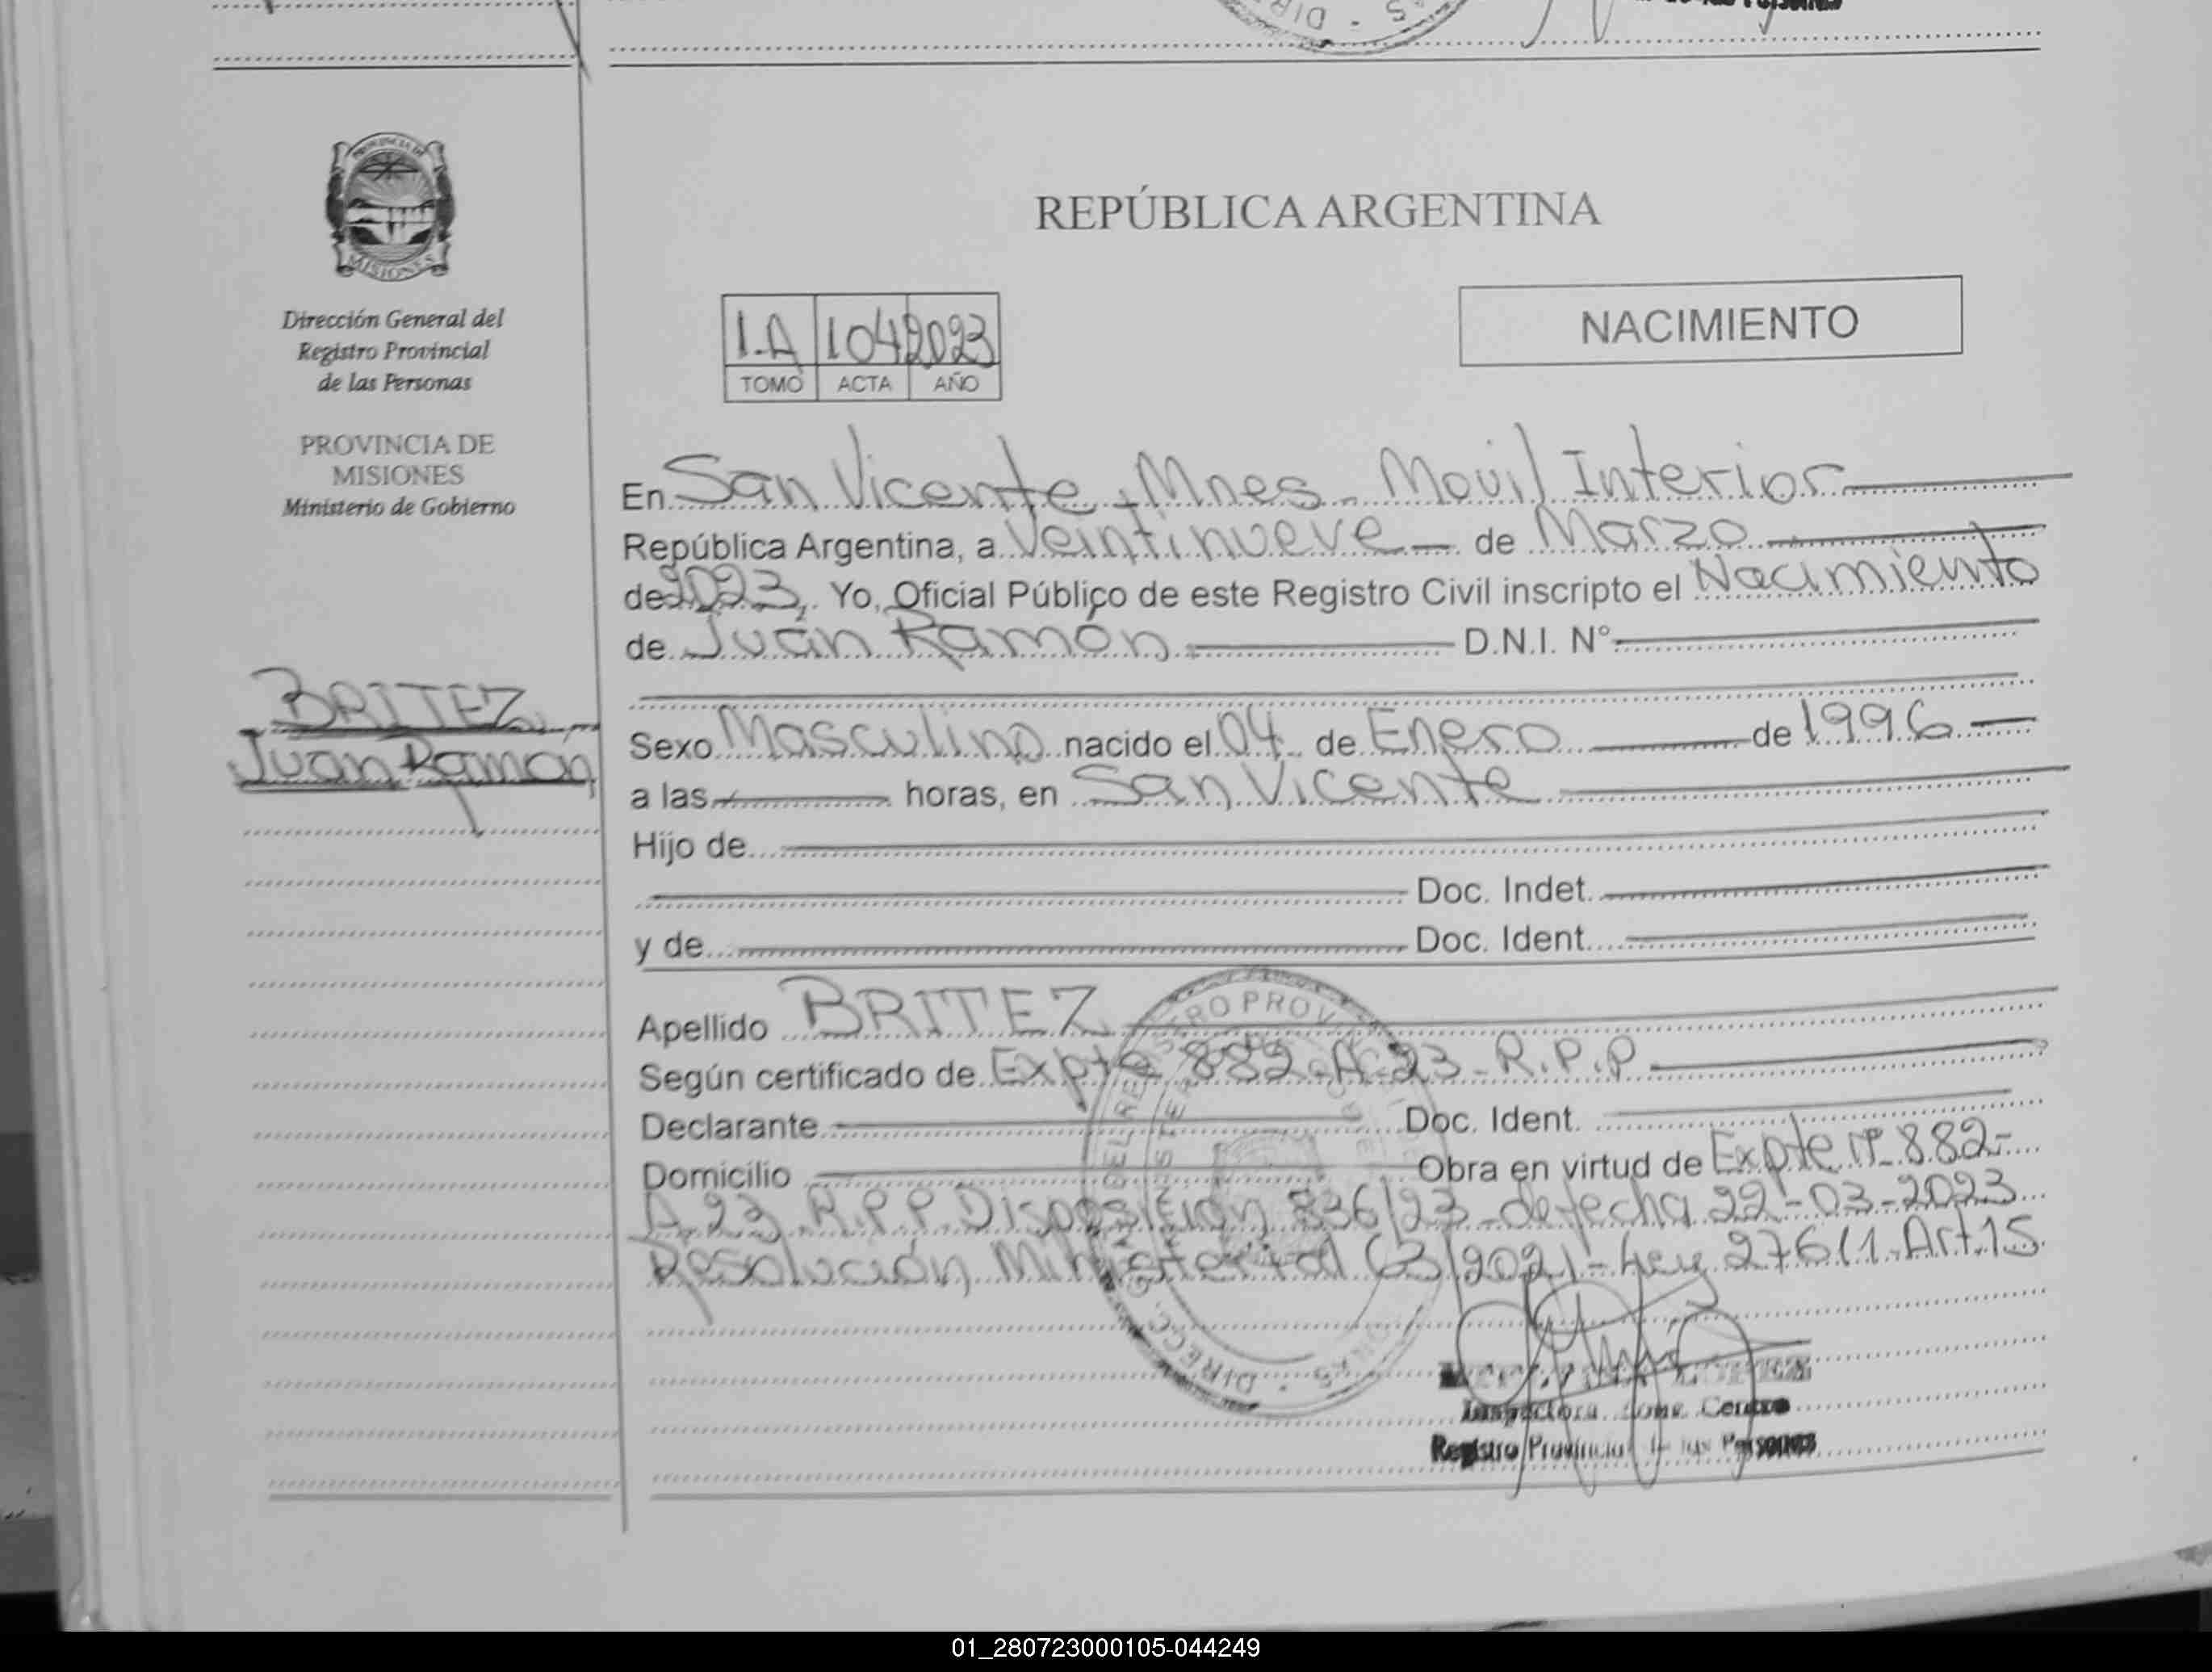 PROVINCIA DE
MISIONES
Dirección General del
Registro Provincial
de las Personas
PROVINCIA DE
MISIONES
Ministerio de Gobierno
BRITEZ
Juan Ramón
REPÚBLICA ARGENTINA
NACIMIENTO
1-A 104 2023
TOMO ACTA AÑO
En San Vicente - Mnes - Movil Interior
República Argentina, a Veintinueve de Marzo
de 2023, Yo, Oficial Público de este Registro Civil inscripto el Nacimiento
de Juan Ramón D.N.I. N°
Sexo Masculino nacido el 04 de Enero de 1996
a las horas, en San Vicente
Hijo de
Doc. Indet.
y de Doc. Ident.
Apellido BRITEZ
Según certificado de Expte 882-A-23-R.P.P
Declarante Doc. Ident.
Domicilio Obra en virtud de Expte nº 882-
A-23 R.P.P Disposición 836/23 de fecha 22-03-2023
Resolución Ministerial 63/2021 - Ley 27611 Art. 15
Inspectora Zona Centro
Registro Provincial de las Personas
01_280723000105-044249